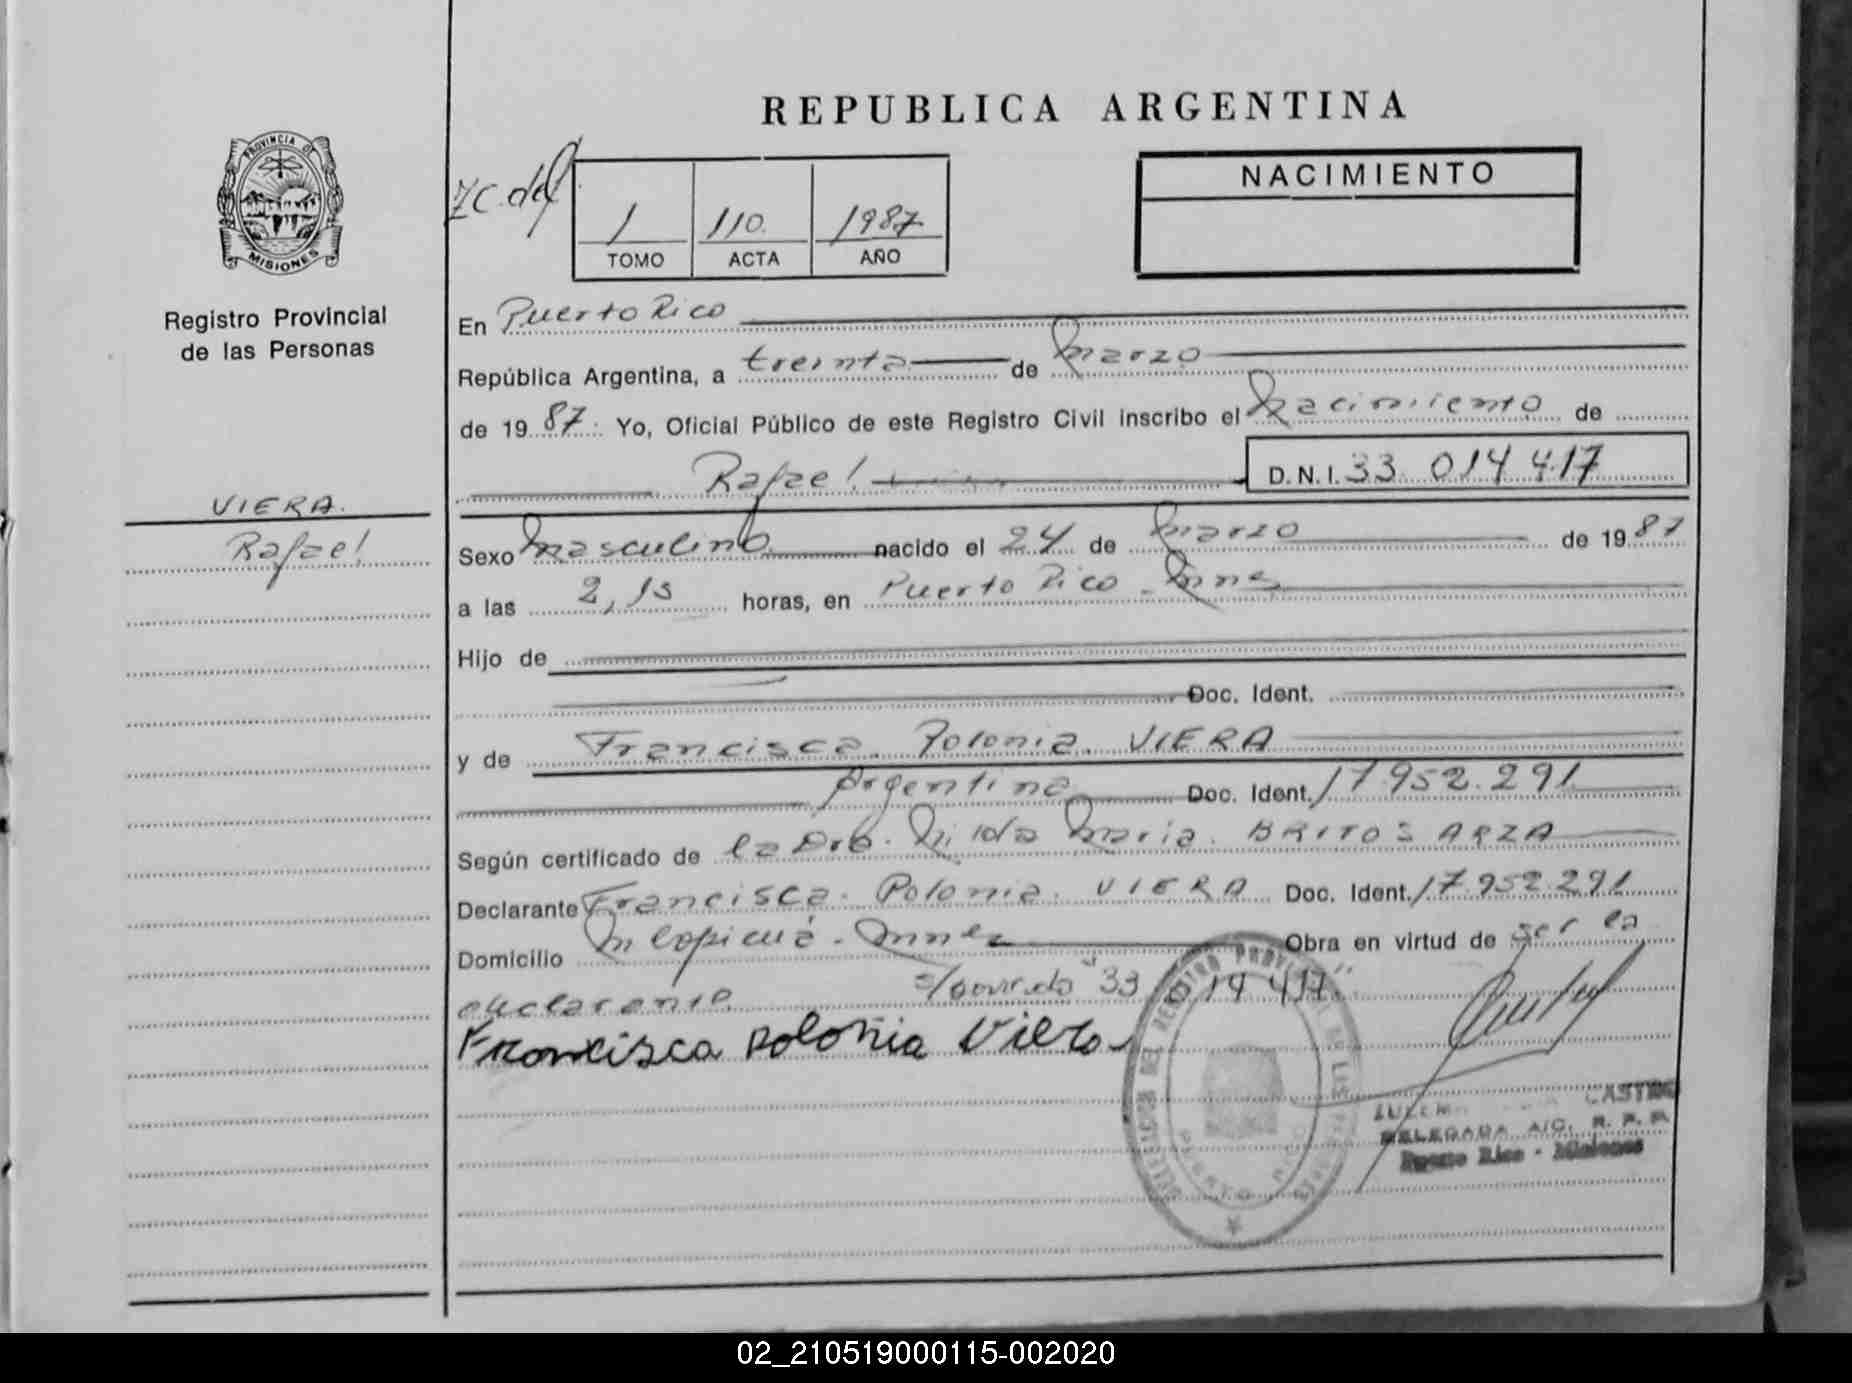 REPUBLICA ARGENTINA
PROVINCIA DE
MISIONES
Registro Provincial
de las Personas
VIERA.
Rafael
1 110. 1987
TOMO ACTA AÑO
NACIMIENTO
En Puerto Rico
República Argentina, a treinta de marzo
de 1987. Yo, Oficial Público de este Registro Civil inscribo el Nacimiento de
Rafael D.N.I. 33 014 417
Sexo masculino nacido el 24 de marzo de 1987
a las 2,15 horas, en Puerto Rico - Mnes
Hijo de
Doc. Ident.
y de Francisca Polonia VIERA
Argentina Doc. Ident. 17.952.291
Según certificado de la Dra. Nilda Maria BRITOS ARZA
Declarante Francisca Polonia VIERA Doc. Ident. 17.952.291
Domicilio Mnes Obra en virtud de ser la
declarante "33 014 417"
Francisca Polonia Viera
CASTRO
DELEGADA R. P. P.
Puerto Rico - Misiones
02_210519000115-002020